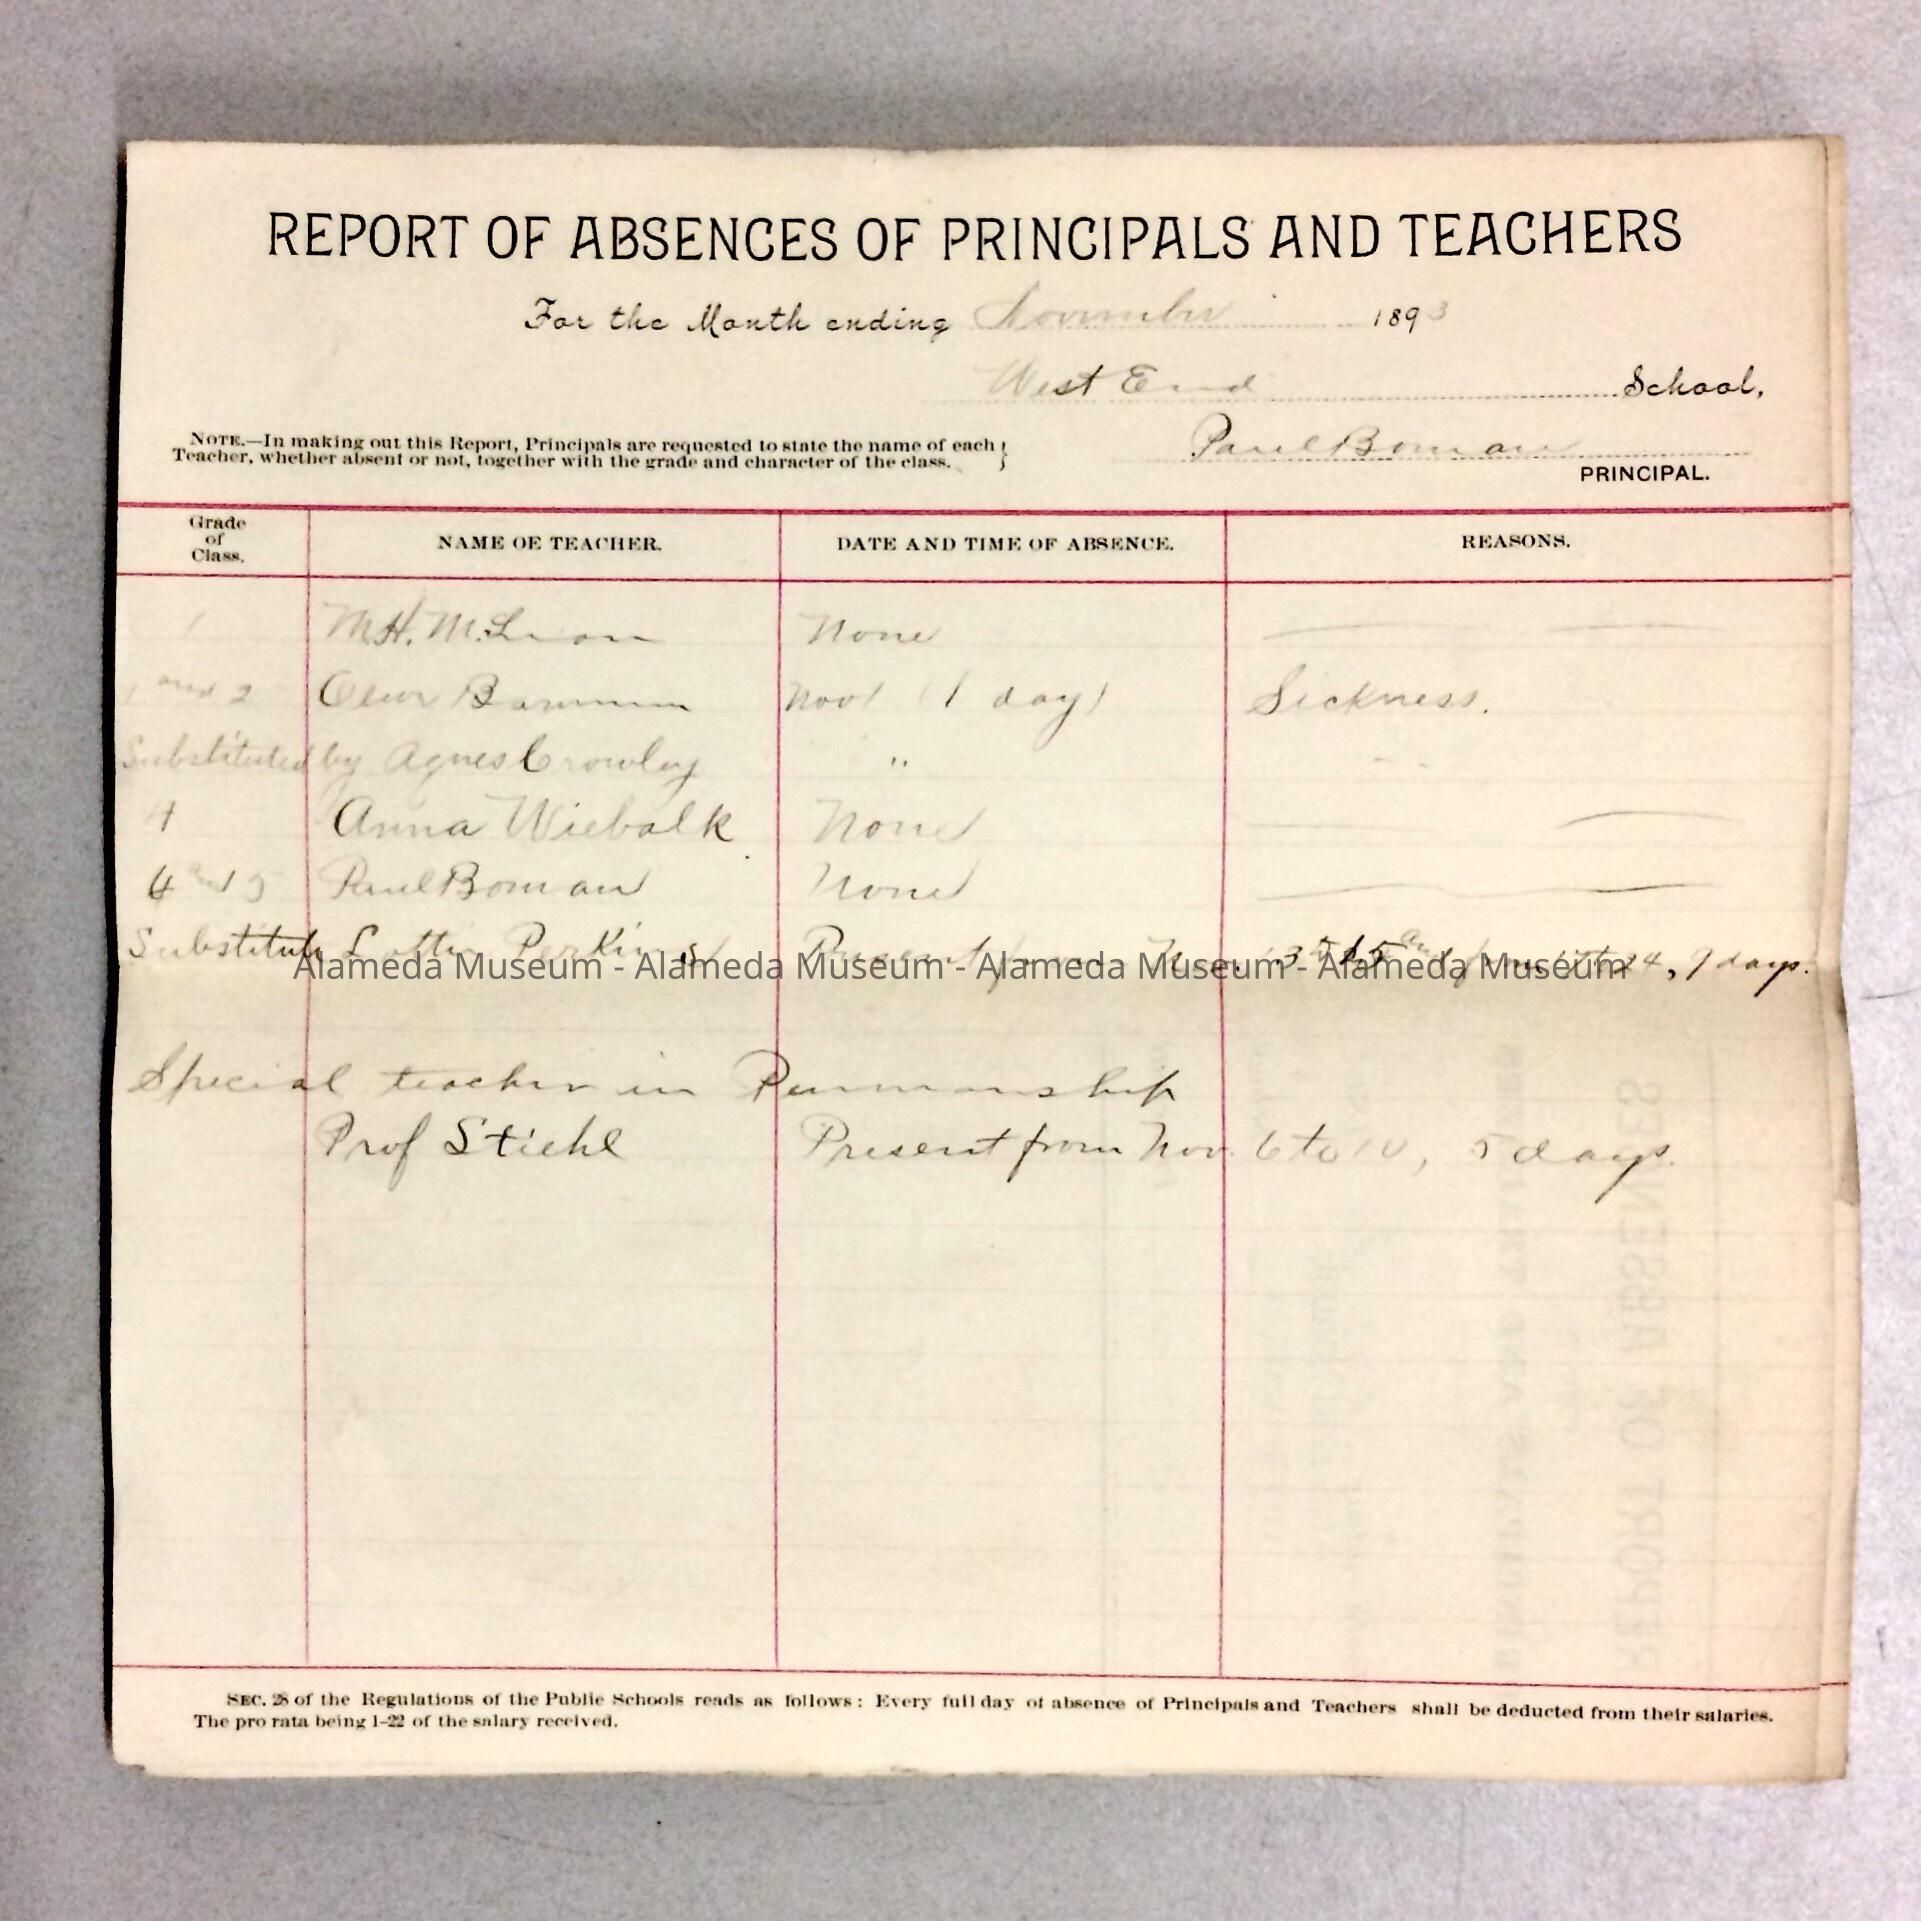 REPORT OF ABSENCES OF PRINCIPALS AND TEACHERS
For the Month ending November 1893
West End School,
NOTE.—In making out this Report, Principals are requested to state the name of each
Teacher, whether absent or not, together with the grade and character of the class.
Paul Boman
PRINCIPAL.
Grade of Class. NAME OF TEACHER. DATE AND TIME OF ABSENCE. REASONS.
1 M.H. None
1 and 2 Barnum Nov 1 (1 day) Sickness.
Substituted by Agnes Crowley "
4 Anna Wiebalk None
4 and 5 Paul Boman None
Substitute Lottie Perkins Present from Nov. 24, 9 days.
Alameda Museum - Alameda Museum - Alameda Museum - Alameda Museum
Special teacher in Penmanship
Prof Stiehl Present from Nov. 6 to 10, 5 days.
SEC. 28 of the Regulations of the Public Schools reads as follows: Every full day of absence of Principals and Teachers shall be deducted from their salaries.
The pro rata being 1-22 of the salary received.
REPORT OF ABSENCES